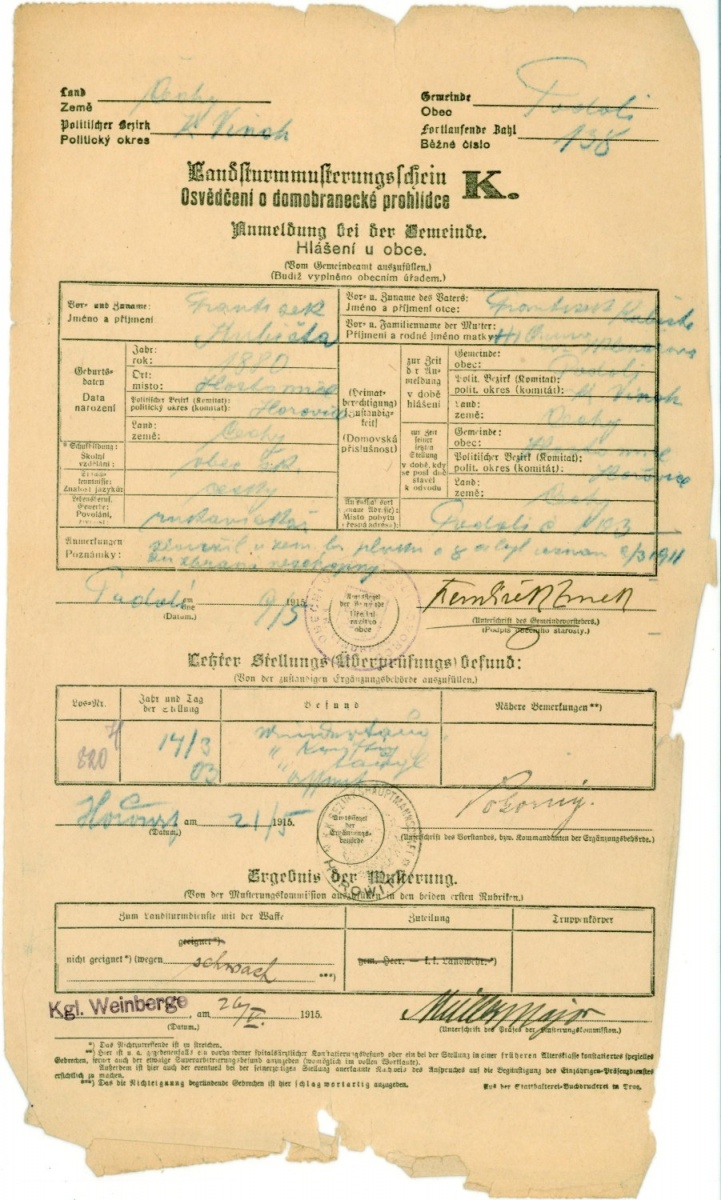 Land
Země Čechy
Politischer Bezirk
Politický okres K Vinoh
Gemeinde
Obec Podolí
Fortlaufende Zahl
Běžné číslo 138
Landsturmmusterungsschein
Osvědčení o domobranecké prohlídce K.
Anmeldung bei der Gemeinde.
Hlášení u obce.
(Vom Gemeindeamt auszufüllen.)
(Budiž vyplněno obecním úřadem.)
Vor- und Zuname:
Jméno a příjmení
František
Kubišta
Vor- u. Zuname des Vaters:
Jméno a příjmení otce: František Kubišta
Vor- u. Familienname der Mutter:
Příjmení a rodné jméno matky:
Geburts-
daten
Data
narození
Jahr:
rok: 1880
Ort:
místo: Hostomice
Politischer Bezirk (Komitat):
politický okres (komitát): Horovice
Land:
země: Čechy
(Heimat-
berechtigung)
(Zuständig-
keit)
(Domovská
příslušnost)
zur Zeit
der An-
meldung
v době
hlášení
Gemeinde:
obec: Podolí
Polit. Bezirk (Komitat):
polit. okres (komitát): K Vinoh
Land:
země: Čechy
zur Zeit
seiner
letzten
Stellung
v době, kdy
se posl. dob.
stavěl
k odvodu
Gemeinde:
obec: Hostomice
Politischer Bezirk (Komitat):
polit. okres (komitát): Hořovice
Land:
země: Čechy
* Schulbildung:
Školní
vzdělání:
obecná
Znalost jazyků:
česky
Povolání,
rukavičkář
Místo pobytu
Podolí č 123
Anmerkungen:
Poznámky:
2/3 1911
ku zbrani neschopný
Podolí am dne 9/5 1915.
(Datum.)
Amtssiegel
der Gemeinde
Úřední
razítko
obce
(Unterschrift des Gemeindevorstehers.)
(Podpis obecního starosty.)
Letzter Stellungs(Überprüfungs)befund:
(Von der zuständigen Ergänzungsbehörde auszufüllen.)
Los-Nr.
Jahr und Tag
der Stellung
Befund
Nähere Bemerkungen**)
320
14/3
03
am 21/5 1915.
(Datum.)
Amtssiegel
der
Ergänzungs-
behörde
K.K. BEZIRKSHAUPTMANNSCHAFT
HOROWITZ
Pokorny.
(Unterschrift des Vorstandes, bzw. Kommandanten der Ergänzungsbehörde.)
Ergebnis der Musterung.
(Von der Musterungskommission auszufüllen in den beiden ersten Rubriken.)
Zum Landsturmdienste mit der Waffe
Zuteilung
Truppenkörper
geeignet*)
nicht geeignet*) (wegen schwach
***)
gem. Heer. — k.k. Landwehr.*)
Kgl. Weinberge, am 26/V. 1915.
(Datum.)
Müller Major
(Unterschrift des Präses der Musterungskommission.)
*) Das Nichtzutreffende ist zu streichen.
**) Hier ist u. a. gegebenenfalls ein vorhandener spitalsärztlicher Konstatierungsbefund oder ein bei der Stellung in einer früheren Altersklasse konstatiertes spezielles
Gebrechen, ferner auch der etwaige Superarbitrierungsbefund anzugeben (womöglich im vollen Wortlaute).
Außerdem ist hier auch der eventuell bei der seinerzeitigen Stellung anerkannte Nachweis des Anspruches auf die Begünstigung des Einjährigen-Präsenzdienstes
ersichtlich zu machen.
***) Das die Nichteignung begründende Gebrechen ist hier schlagwortartig anzugeben.
Aus der Statthalterei-Buchdruckerei in Prag.